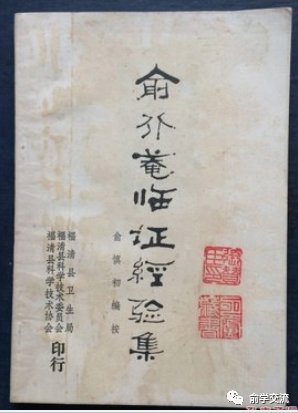 俞介菴临证经验集
俞慎初编按
福清县卫生局
福清县科学技术委员会
福清县科学技术协会
印行
俞学交流